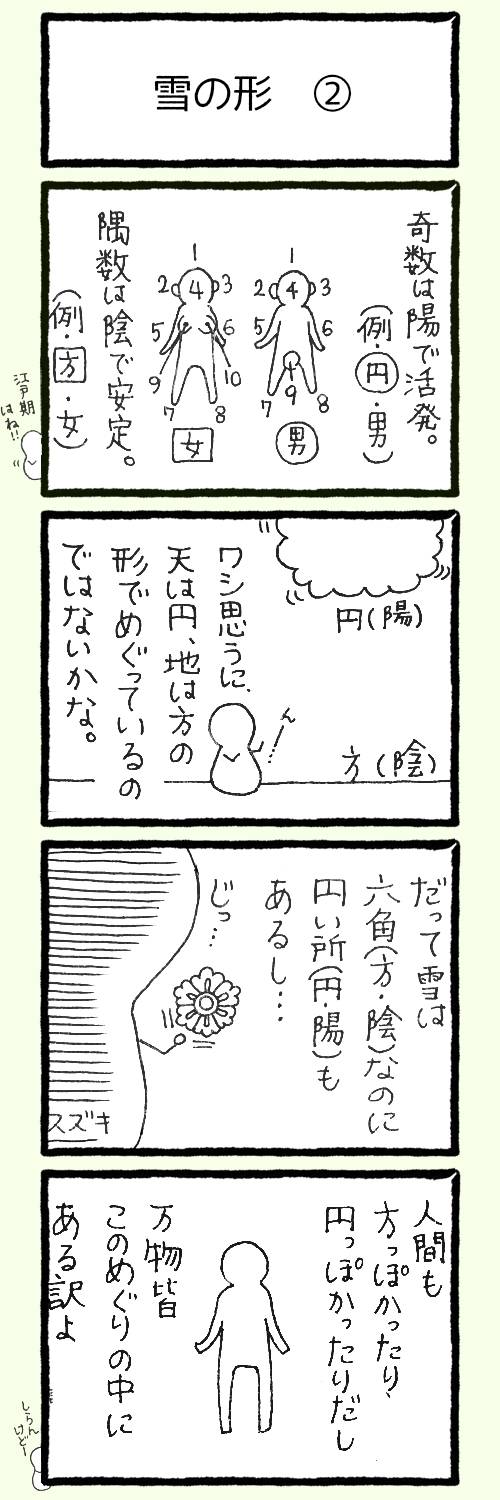 雪の形 ②
奇数は陽で活発。
(例・円・男)
1
2 4 3
5 6
4
9
7 8
男
1
2 4 3
5 6
9 10
7 8
女
隅数は陰で安定。
(例・方・女)
江戸期
はね!!
円(陽)
方(陰)
ん
ワシ思うに、
天は円、地は方の
形でめぐっているの
ではないかな。
だって雪は
六角(方・陰)なのに
円い所(円・陽)も
あるし…
じっ…
スズキ
人間も
方っぽかったり、
円っぽかったりだし
万物皆
このめぐりの中に
ある訳よ
しらん
けどー